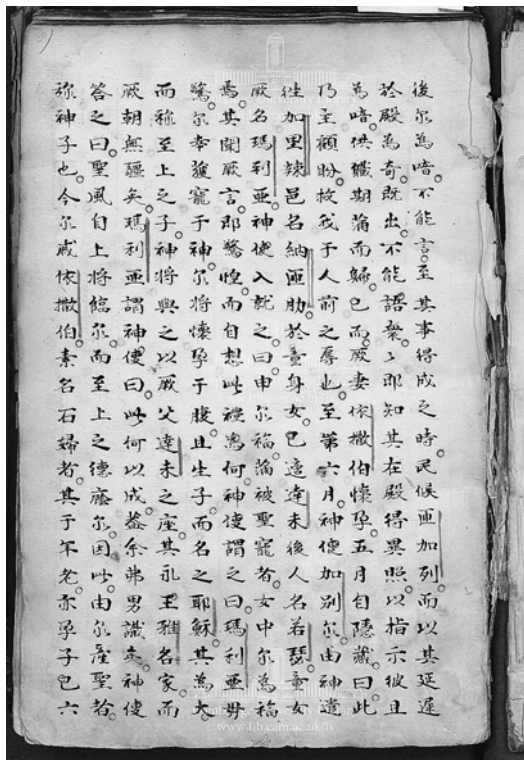 後尔為喑不能言至其事得成之時民候匝加列而以其延遲
於殿為奇既出不能語衆〻即知其在殿得異照以指示彼且
為喑供職期滿而歸已而厥妻依撒伯懷孕五月自隱藏曰此
乃主顧盼救我于人前之辱也至第六月神使加別尔由神遣
往加里辣邑名納匝肋於童身女已適達未後人名若瑟童女
厥名瑪利亜神使入就之曰申尔福滿被聖寵者女中尔為福
焉其聞厥言即驚惶而自想此禮為何神使謂之曰瑪利亜毋
驚尔奉獲寵于神尔將懷孕于腹且生子而名之耶穌其為大
而稱至上之子神將與之以厥父達未之座其永王雅各家而
厥朝無疆矣瑪利亜謂神使曰此何以成蓋余弗男識矣神使
答之曰聖風自上將臨尔而至上之德廕尔因此由尔產聖者
稱神子也今尔戚依撒伯素名石婦者其于年老亦孕子已六